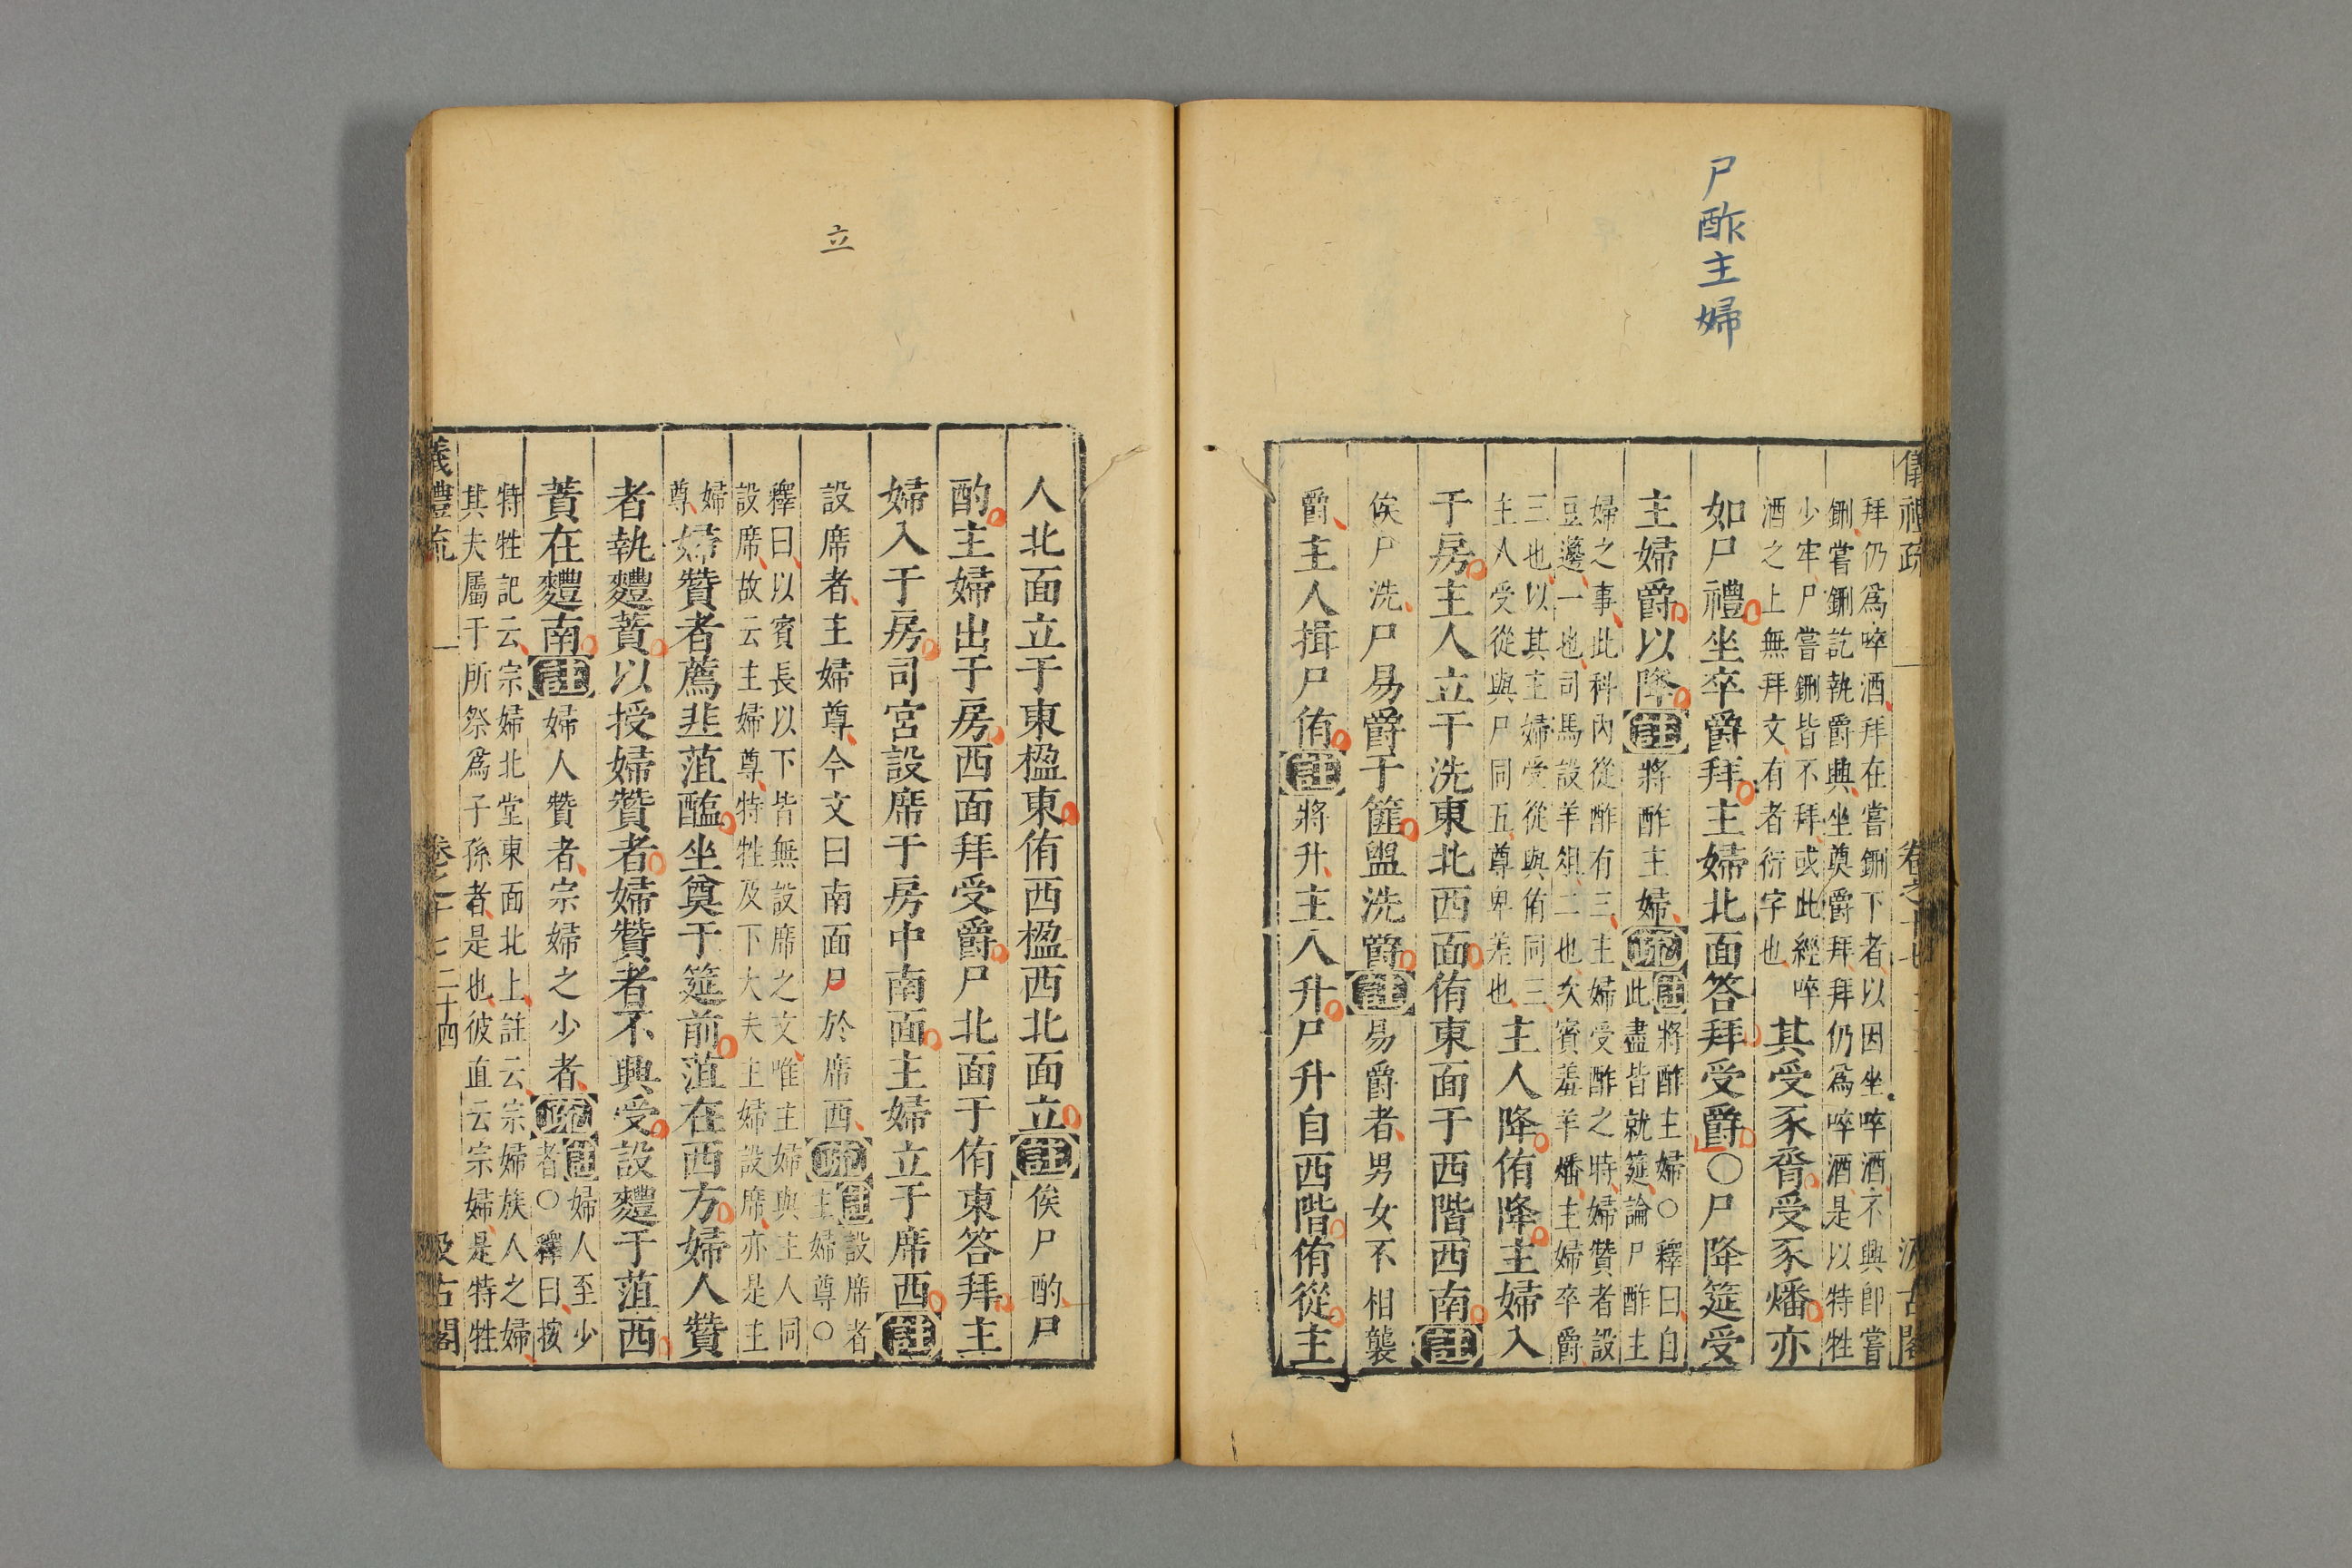 尸酢主婦
儀禮疏 卷之十七 汲古閣
拜仍爲啐酒拜在嘗鉶下者以因坐啐酒不興即嘗
鉶嘗鉶訖執爵興坐奠爵拜拜仍爲啐酒是以特牲
少牢尸嘗鉶皆不拜或此經啐
酒之上無拜文有者衍字也
其受豕脀受豕燔亦
如尸禮坐卒爵拜主婦北面答拜受爵○尸降筵受
主婦爵以降
註
將酢主婦
疏
註將酢主婦○釋曰自
此盡皆就筵論尸酢主
婦之事此科內從酢有三主婦受酢之時婦贊者設
豆籩一也司馬設羊俎二也次賓羞羊燔主婦卒爵
三也以其主婦受從與侑同三
主人受從與尸同五尊卑差也
主人降侑降主婦入
于房主人立于洗東北西面侑東面于西階西南
註
俟尸洗尸易爵于篚盥洗爵
註
易爵者男女不相襲
爵主人揖尸侑
註
將升主人升尸升自西階侑從主
立
人北面立于東楹東侑西楹西北面立
註
俟尸酌尸
酌主婦出于房西面拜受爵尸北面于侑東答拜主
婦入于房司宮設席于房中南面主婦立于席西
註
設席者主婦尊今文曰南面尸於席西
疏
註設席者
主婦尊○
釋曰以賓長以下皆無設席之文唯主婦與主人同
設席故云主婦尊特牲及下大夫主婦設席亦是主
婦
尊
婦贊者薦韭菹醢坐奠于筵前菹在西方婦人贊
者執麷蕡以授婦贊者婦贊者不興受設麷于菹西
蕡在麷南
註
婦人贊者宗婦之少者
疏
註婦人至少
者○釋曰按
特牲記云宗婦北堂東面北上註云宗婦族人之婦
其夫屬于所祭爲子孫者是也彼直云宗婦是特牲
儀禮疏 卷之十七 二十四 汲古閣